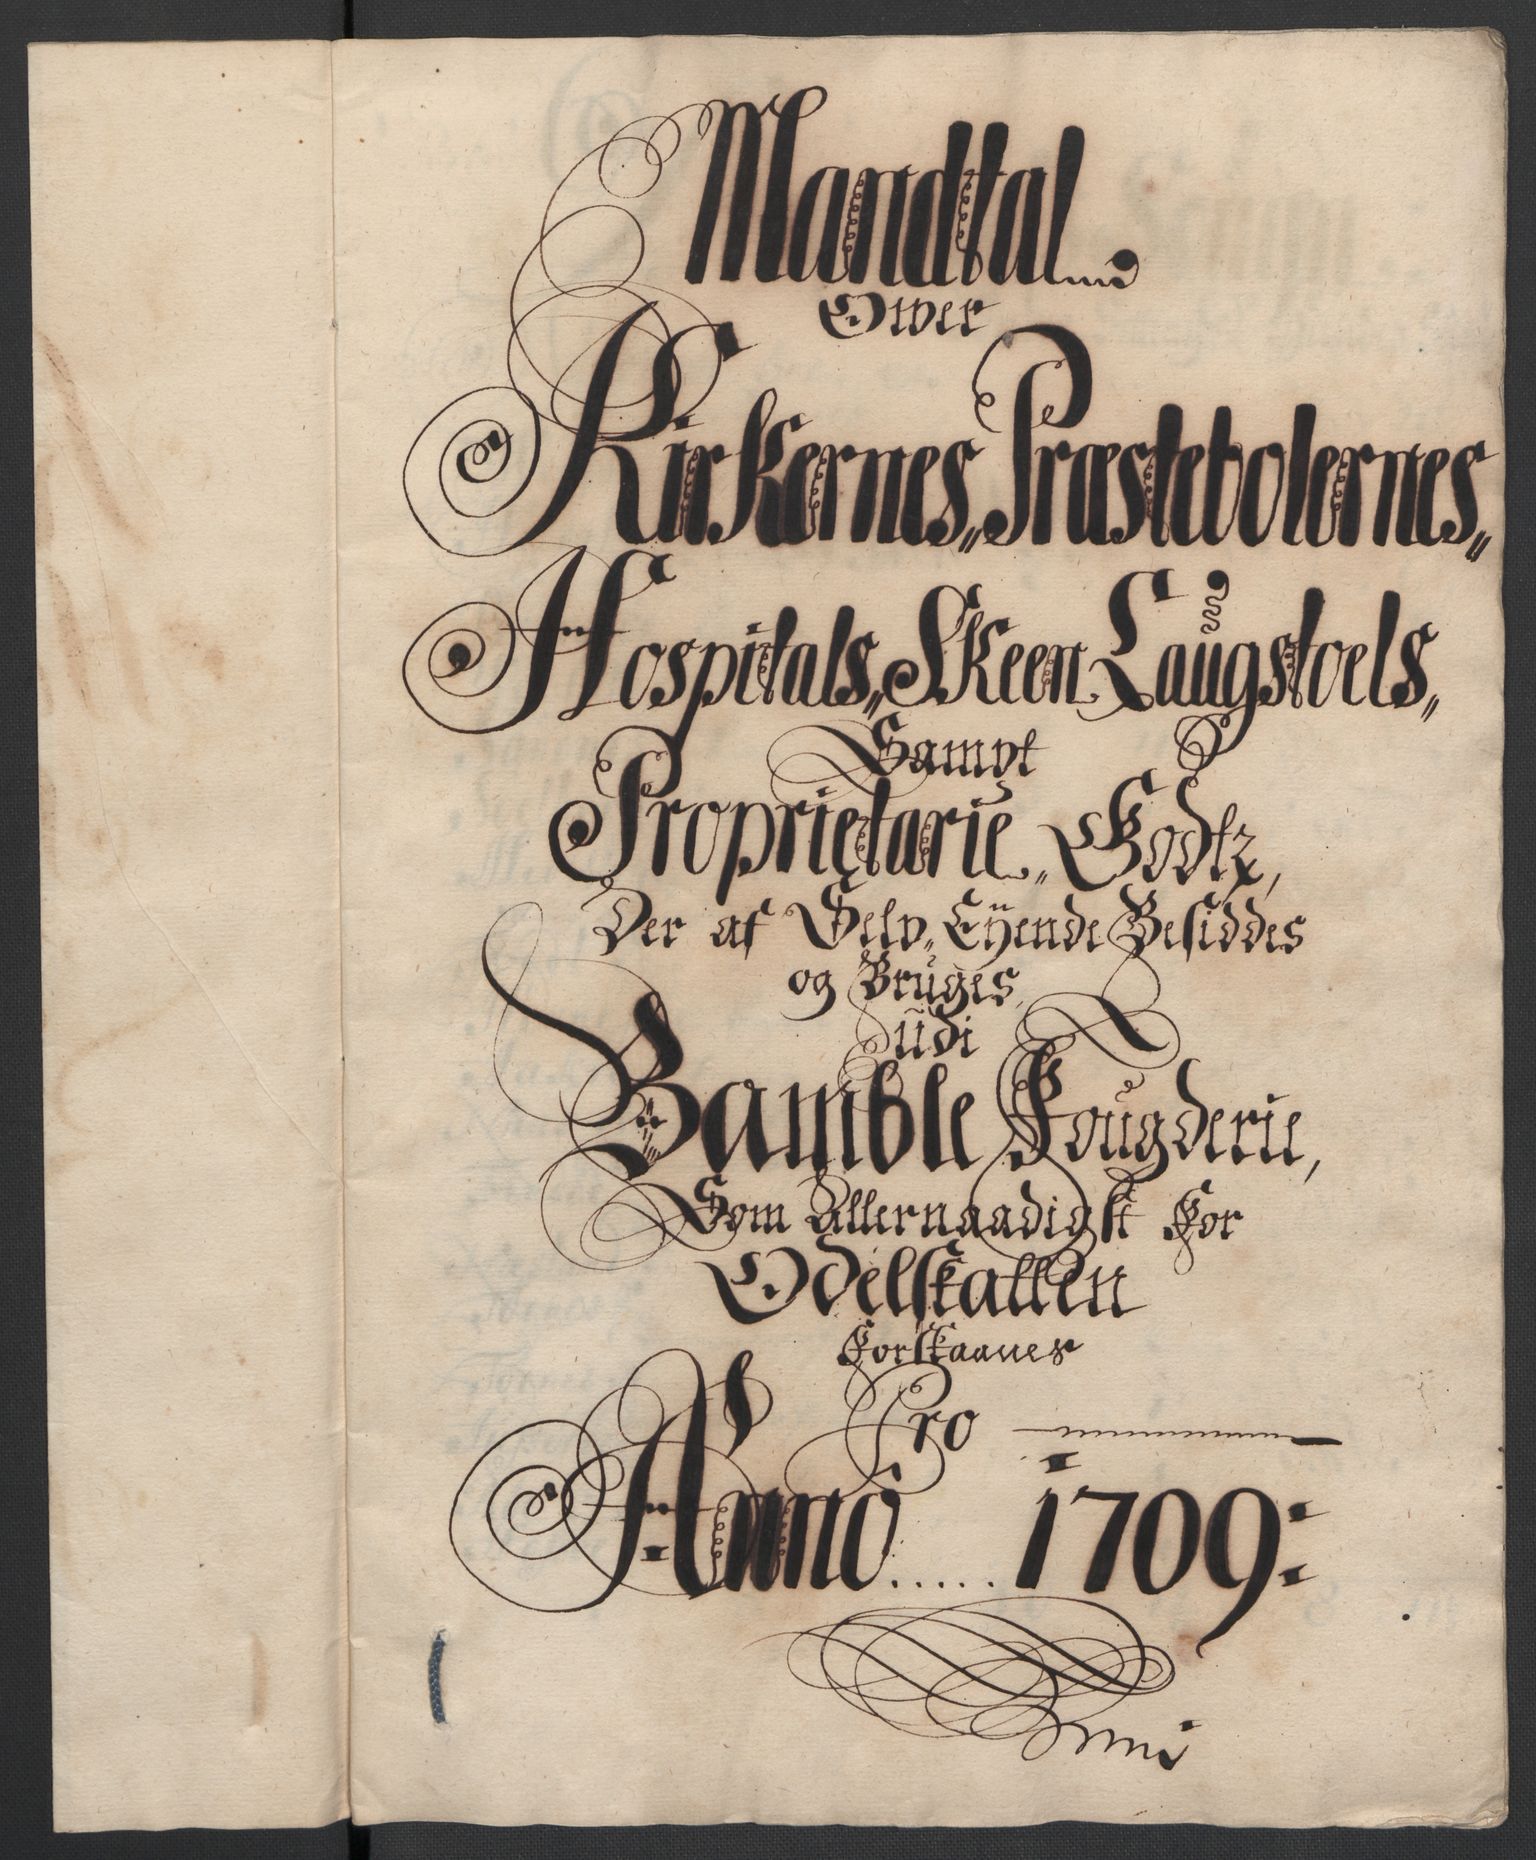 Mandtal
Ower
Kirkernes„ Præstebolernes„
Hospitals„ Skeen Laugstoels„
Sampt
Proprietarie„ Godtz,
Der af Selv„ Eyende Besiddes
og Bruges,
udi
Bamble Fougderie,
Som Allernaadigst For
Odelskatten
Forskaanes
Pro
Anno ..... 1709: